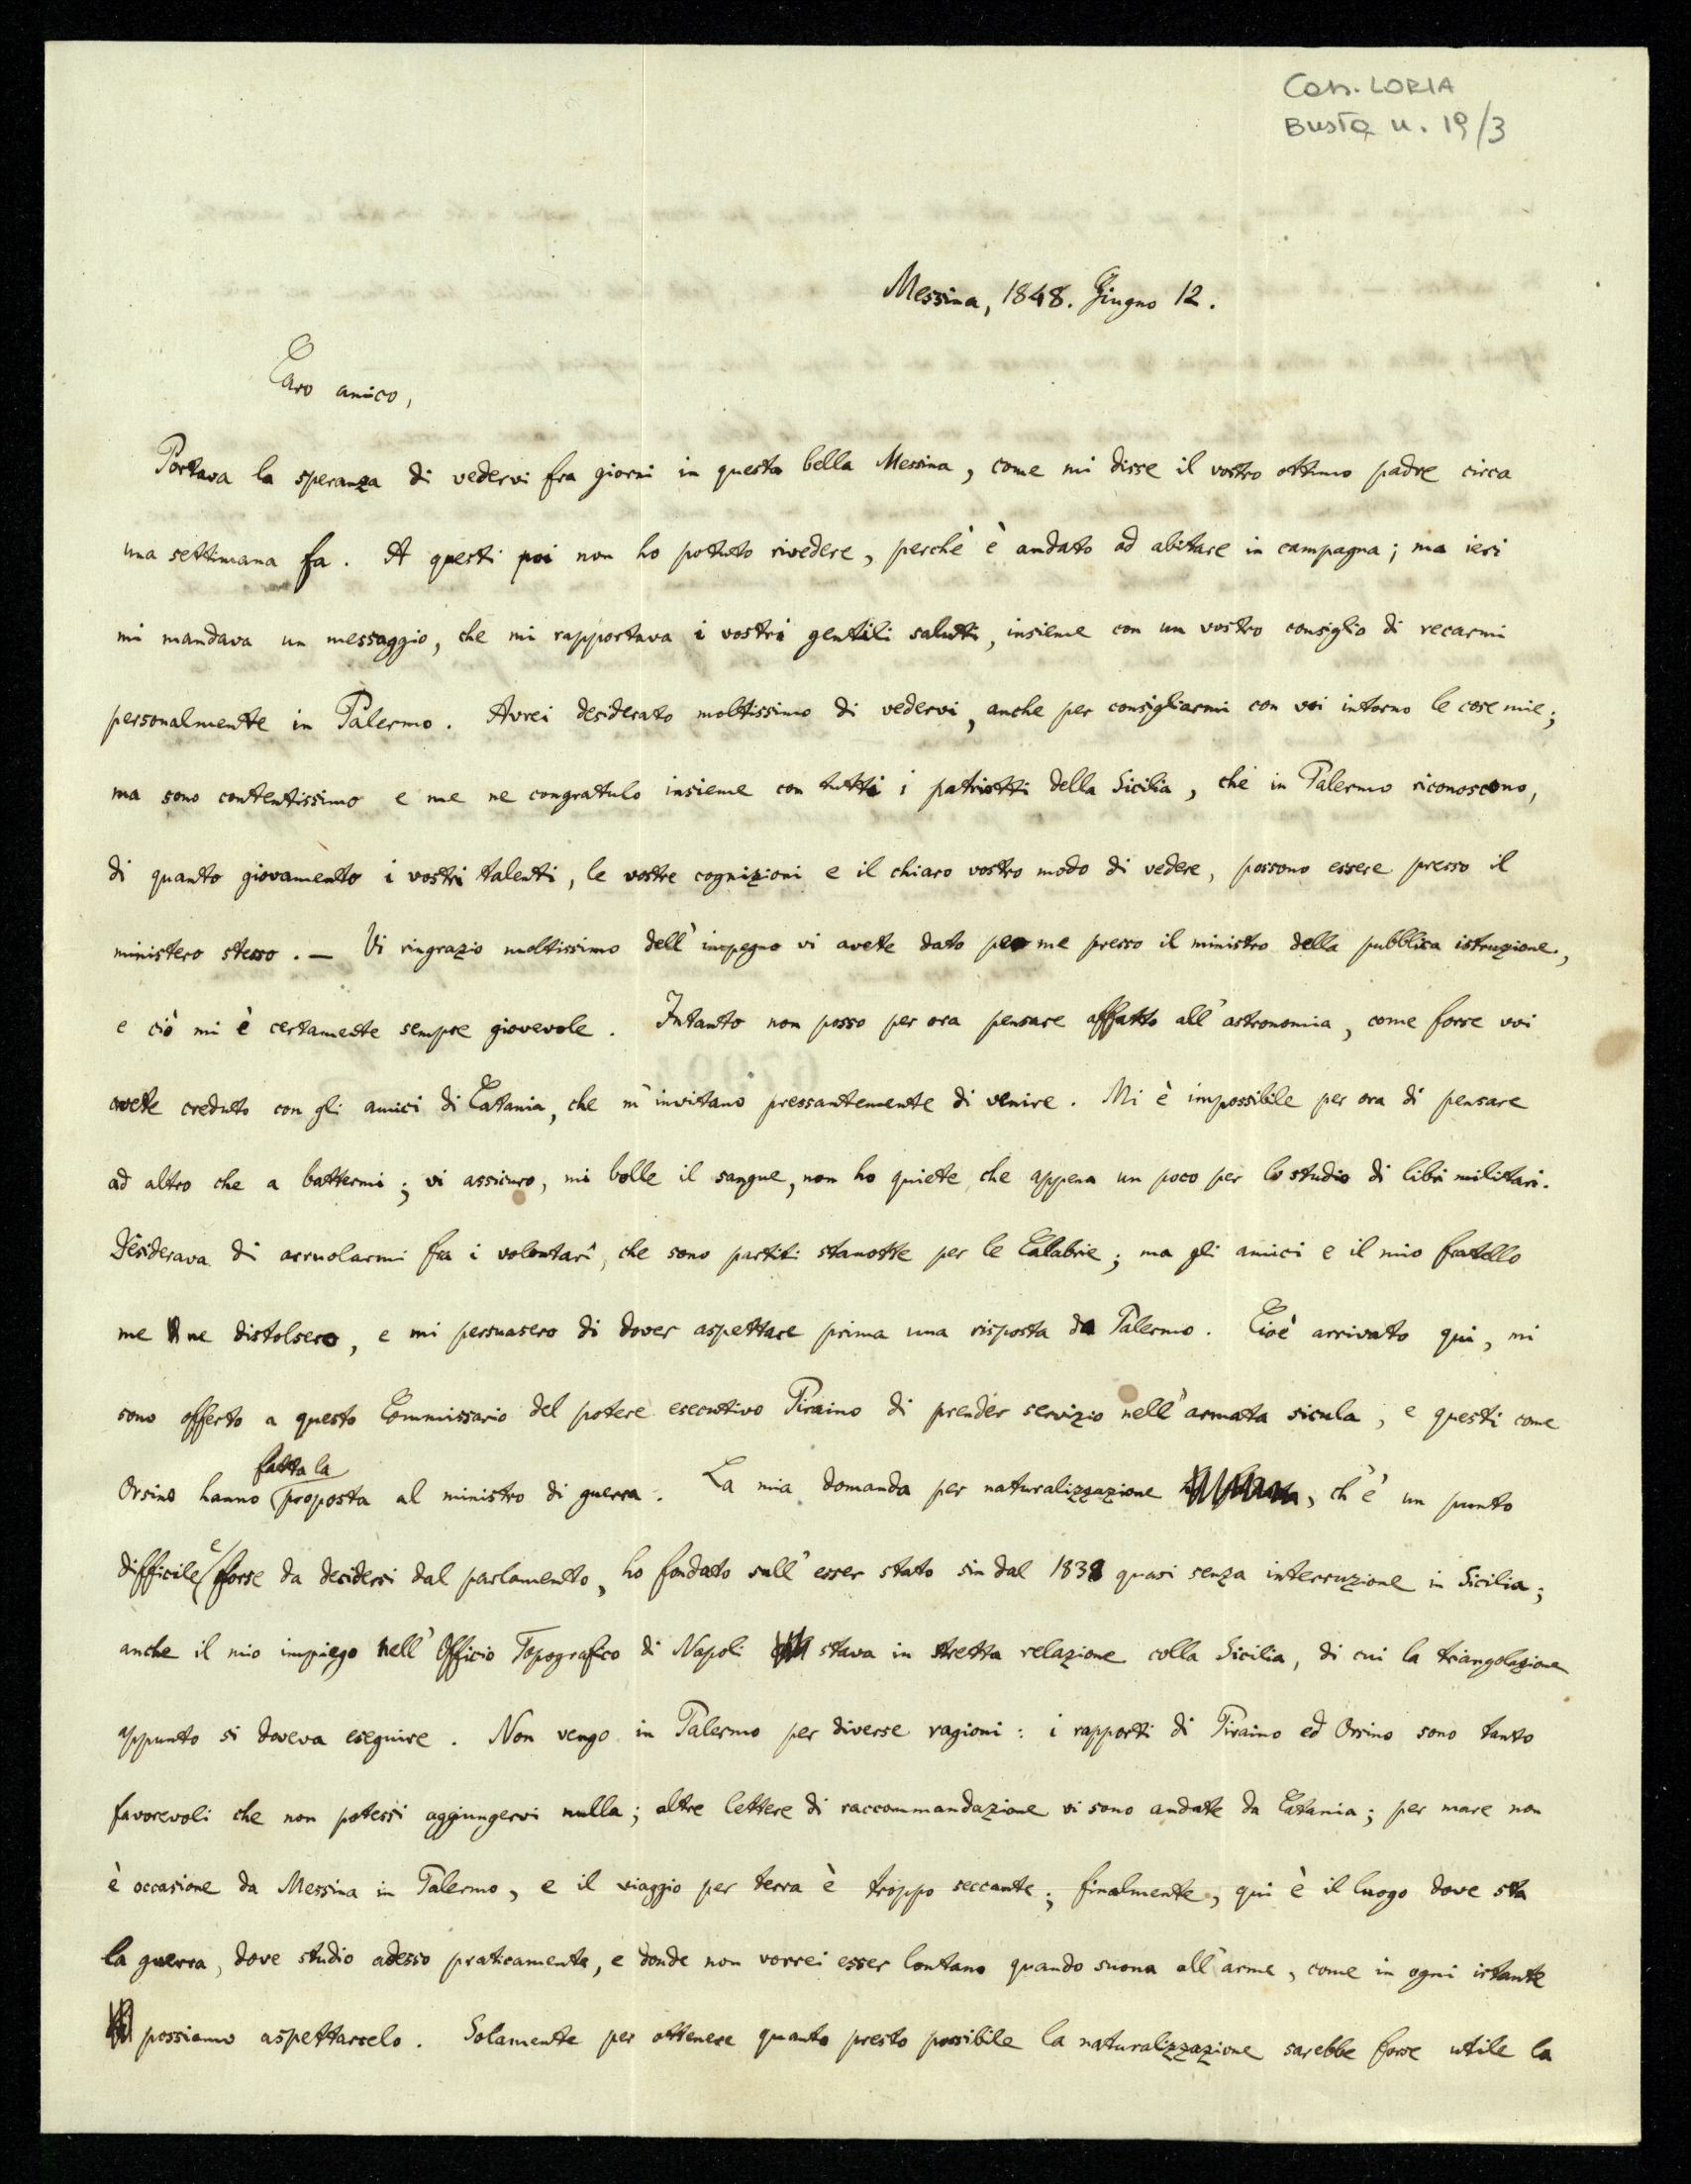 Con. LORIA
Busta n. 19/3
Messina, 1848. Giugno 12.
Caro amico,
Portava la speranza di vedervi fra giorni in questa bella Messina, come mi disse il vostro ottimo padre circa
una settimana fa. A questi poi non ho potuto rivedere, perchè è andato ad abitare in campagna; ma ieri
mi mandava un messaggio, che mi rapportava i vostri gentili saluti, insieme con un vostro consiglio di recarmi
personalmente in Palermo. Avrei desiderato moltissimo di vedervi, anche per consigliarmi con voi intorno le cose mie;
ma sono contentissimo e me ne congratulo insieme con tutti i patriotti della Sicilia, che in Palermo riconoscono,
di quanto giovamento i vostri talenti, le vostre cognizioni e il chiaro vostro modo di vedere, possono essere presso il
ministero stesso. — Vi ringrazio moltissimo dell' impegno vi avete dato per me presso il ministro della pubblica istruzione,
e ciò mi è certamente sempre giovevole. Intanto non posso per ora pensare affatto all' astronomia, come forse voi
avete creduto con gli amici di Catania, che m' invitano pressantemente di venire. Mi è impossibile per ora di pensare
ad altro che a battermi; vi assicuro, mi bolle il sangue, non ho quiete che appena un poco per lo studio di libri militari.
Desiderava di arruolarmi fra i volontarî, che sono partiti stanotte per le Calabrie; ma gli amici e il mio fratello
me ne distolsero, e mi persuasero di dover aspettare prima una risposta da Palermo. Cioè arrivato qui, mi
sono offerto a questo Commissario del potere esecutivo Piraino di prender servizio nell' armata sicula, e questi come
Orsino hanno fatta la proposta al ministro di guerra. La mia domanda per naturalizzazione, ch' è un punto
difficile e forse da decidersi dal parlamento, ho fondato sull' esser stato sin dal 1838 quasi senza interruzione in Sicilia;
anche il mio impiego nell' Officio Topografico di Napoli stava in stretta relazione colla Sicilia, di cui la triangolazione
appunto si doveva eseguire. Non vengo in Palermo per diverse ragioni: i rapporti di Piraino ed Orsino sono tanto
favorevoli che non potessi aggiungervi nulla; altre lettere di raccommandazione vi sono andate da Catania; per mare non
è occasione da Messina in Palermo, e il viaggio per terra è troppo seccante; finalmente, qui è il luogo dove sta
la guerra, dove studio adesso praticamente, e donde non vorrei esser lontano quando suona all' arme, come in ogni istante
possiamo aspettarcelo. Solamente per ottenere quanto presto possibile la naturalizzazione sarebbe forse utile la